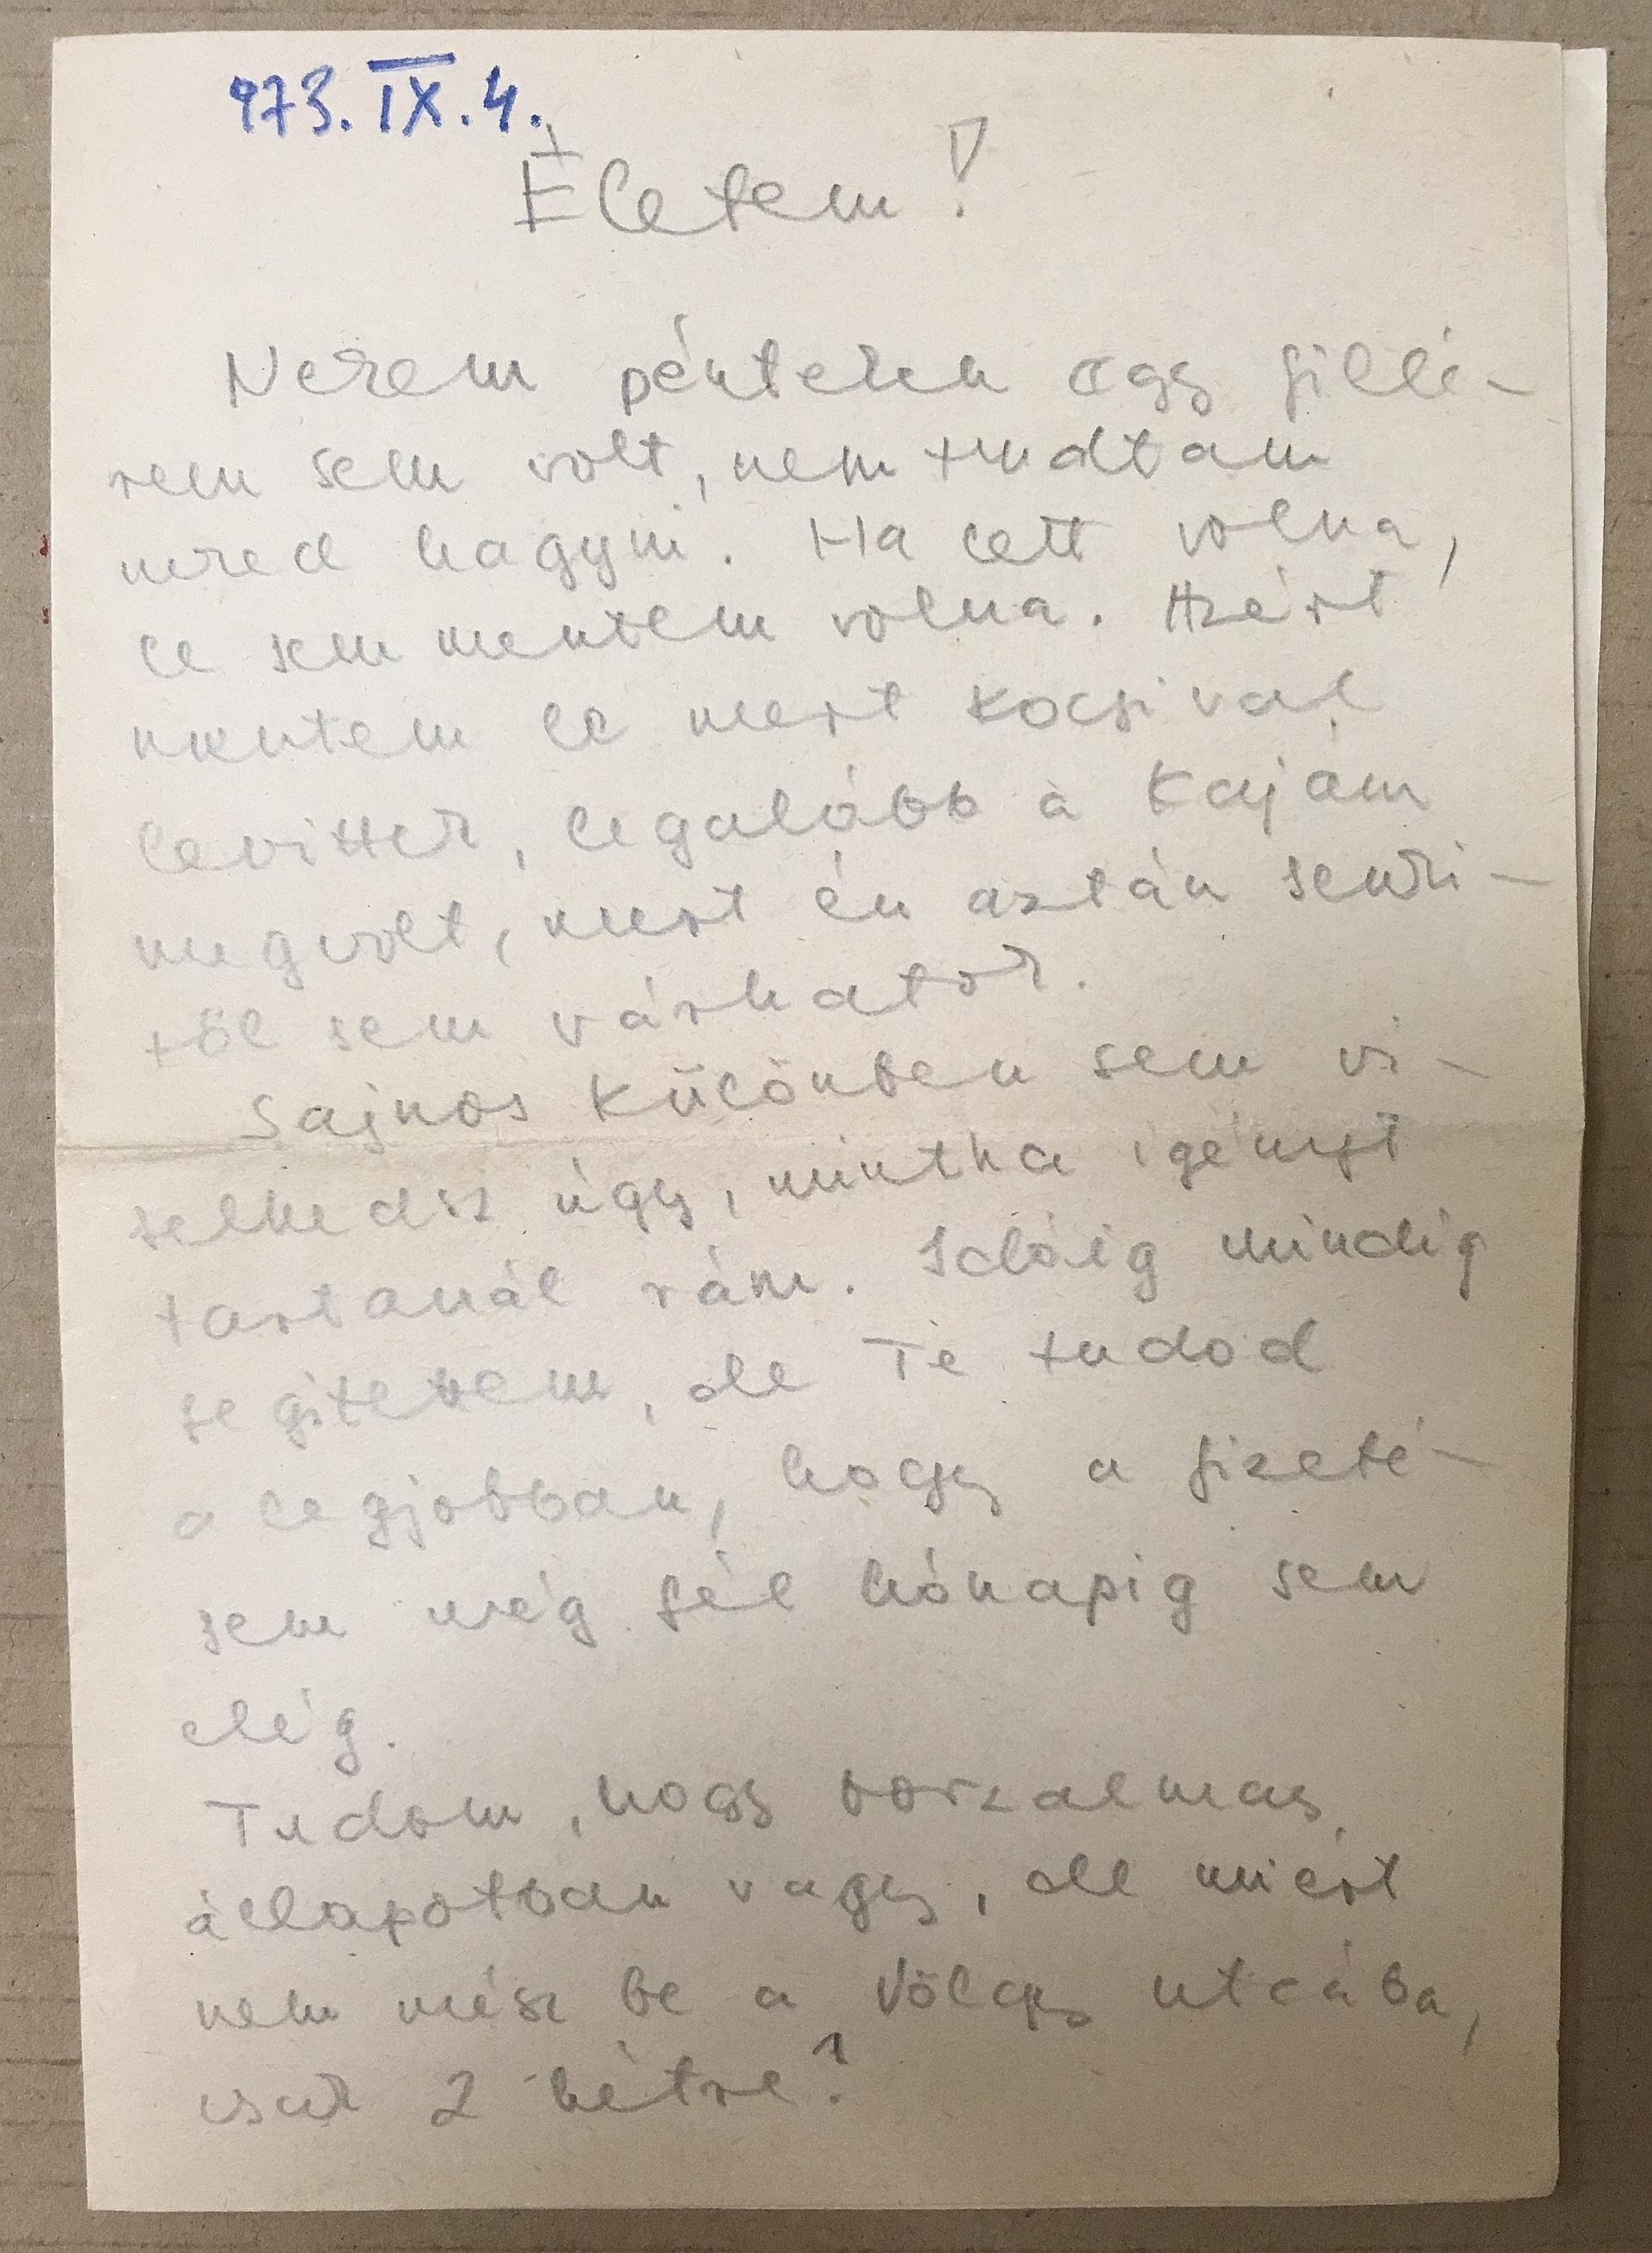 973. IX. 4.
Életem!
Nekem pénteken egy fillé-
rem sem volt, nem tudtam
neked hagyni. Ha lett volna,
le sem mentem volna. Azért
mentem le mert kocsival
levittek, legalább a kajám
megvolt, mert én aztán senki-
től sem várhatok.
Sajnos különben sem vi-
selkedsz úgy, mintha igényt
tartanál rám. Idáig mindig
segítettem, de Te tudod
a legjobban, hogy a fizeté-
sem még fél hónapig sem
elég.
Tudom, hogy borzalmas
állapotban vagy, de miért
nem mész be a Völgy utcába,
csak 2 hétre?